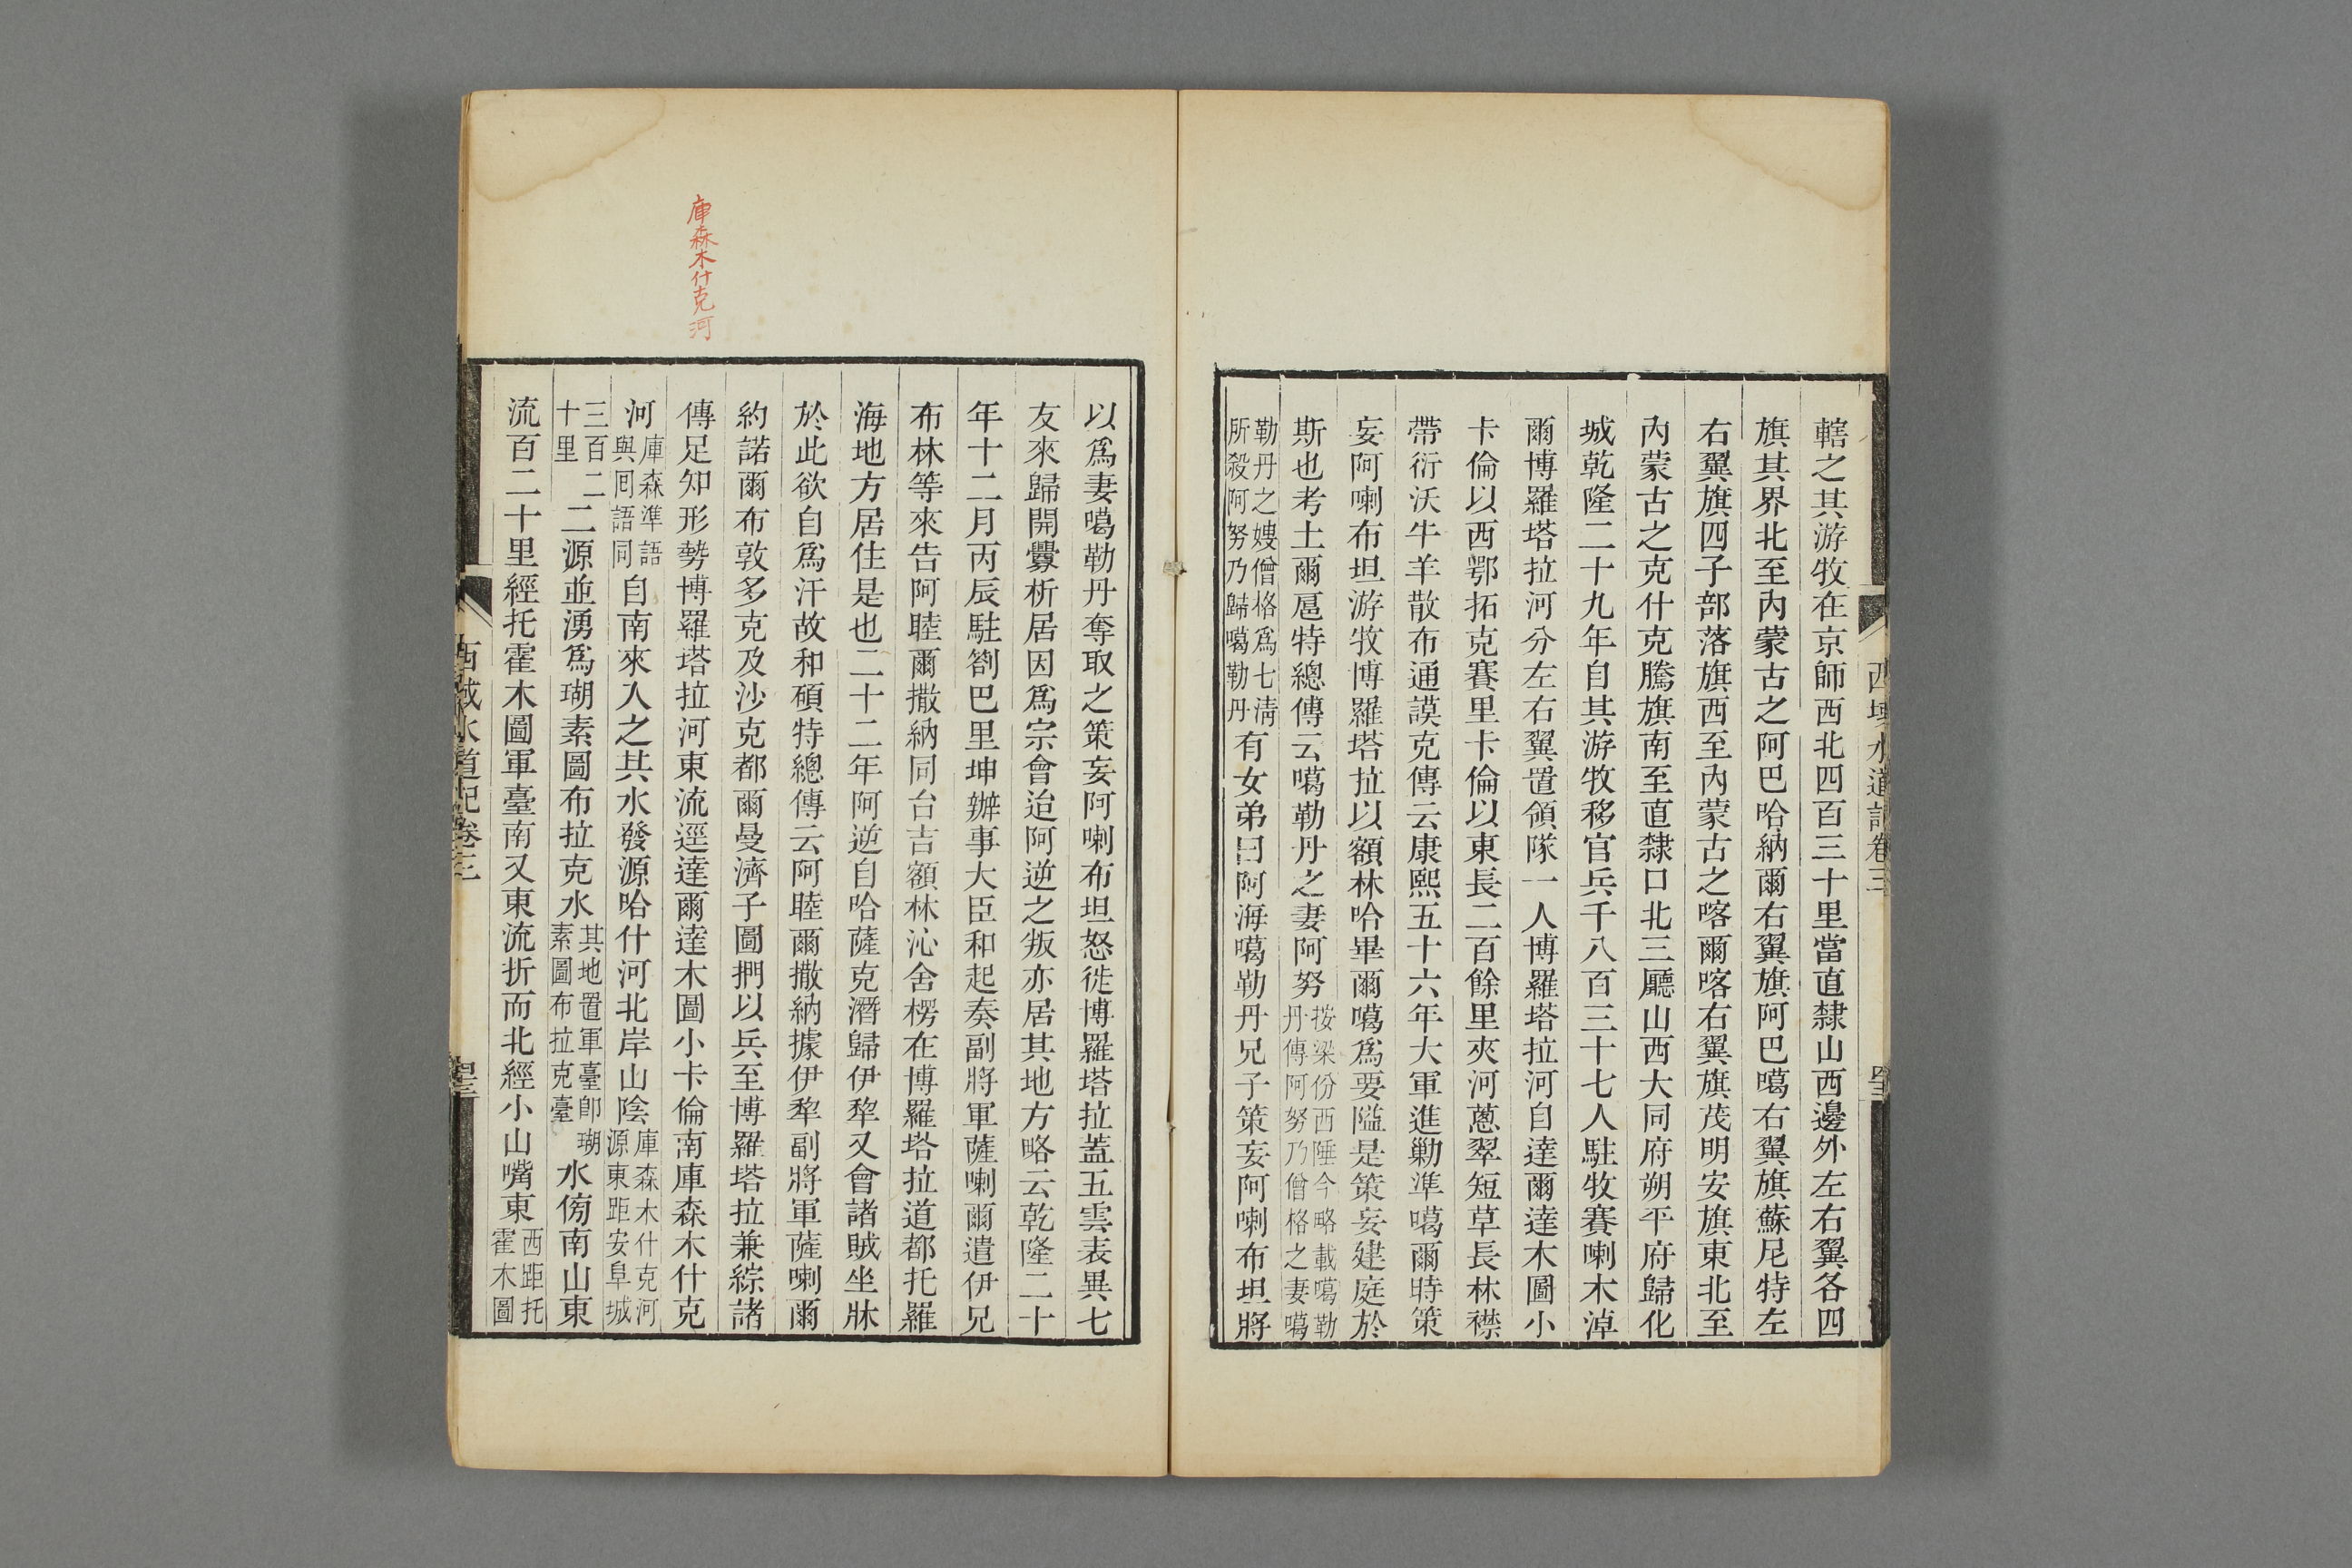 轄之其游牧在京師西北四百三十里當直隸山西邊外左右翼各四
旗其界北至內蒙古之阿巴哈納爾右翼旗阿巴噶右翼旗蘇尼特左
右翼旗四子部落旗西至內蒙古之喀爾喀右翼旗茂明安旗東北至
內蒙古之克什克騰旗南至直隸口北三廳山西大同府朔平府歸化
城乾隆二十九年自其游牧移官兵千八百三十七人駐牧賽喇木淖
爾博羅塔拉河分左右翼置領隊一人博羅塔拉河自達爾達木圖小
卡倫以西鄂拓克賽里卡倫以東長二百餘里夾河蔥翠短草長林襟
帶衍沃牛羊散布通謨克傳云康熙五十六年大軍進勦準噶爾時策
妄阿喇布坦游牧博羅塔拉以額林哈畢爾噶爲要隘是策妄建庭於
斯也考土爾扈特總傳云噶勒丹之妻阿努按梁份西陲今略載噶勒丹傳阿努乃僧格之妻噶
勒丹之嫂僧格爲七淸所殺阿努乃歸噶勒丹有女弟曰阿海噶勒丹兄子策妄阿喇布坦將
西域水道記卷三
以爲妻噶勒丹奪取之策妄阿喇布坦怒徙博羅塔拉蓋五雲表異七
友來歸開釁析居因爲宗會迨阿逆之叛亦居其地方略云乾隆二十
年十二月丙辰駐劄巴里坤辦事大臣和起奏副將軍薩喇爾遣伊兄
布林等來告阿睦爾撒納同台吉額林沁舍楞在博羅塔拉道都托羅
海地方居住是也二十二年阿逆自哈薩克潛歸伊犂又會諸賊坐牀
於此欲自爲汗故和碩特總傳云阿睦爾撒納據伊犂副將軍薩喇爾
約諾爾布敦多克及沙克都爾曼濟子圖捫以兵至博羅塔拉兼綜諸
傳足知形勢博羅塔拉河東流逕達爾達木圖小卡倫南庫森木什克
河庫森準語與囘語同自南來入之其水發源哈什河北岸山陰庫森木什克河源東距安阜城
三百二十里二源並湧爲瑚素圖布拉克水其地置軍臺卽瑚素圖布拉克臺水傍南山東
流百二十里經托霍木圖軍臺南又東流折而北經小山嘴東西距托霍木圖
西域水道記卷三
庫森木什克河